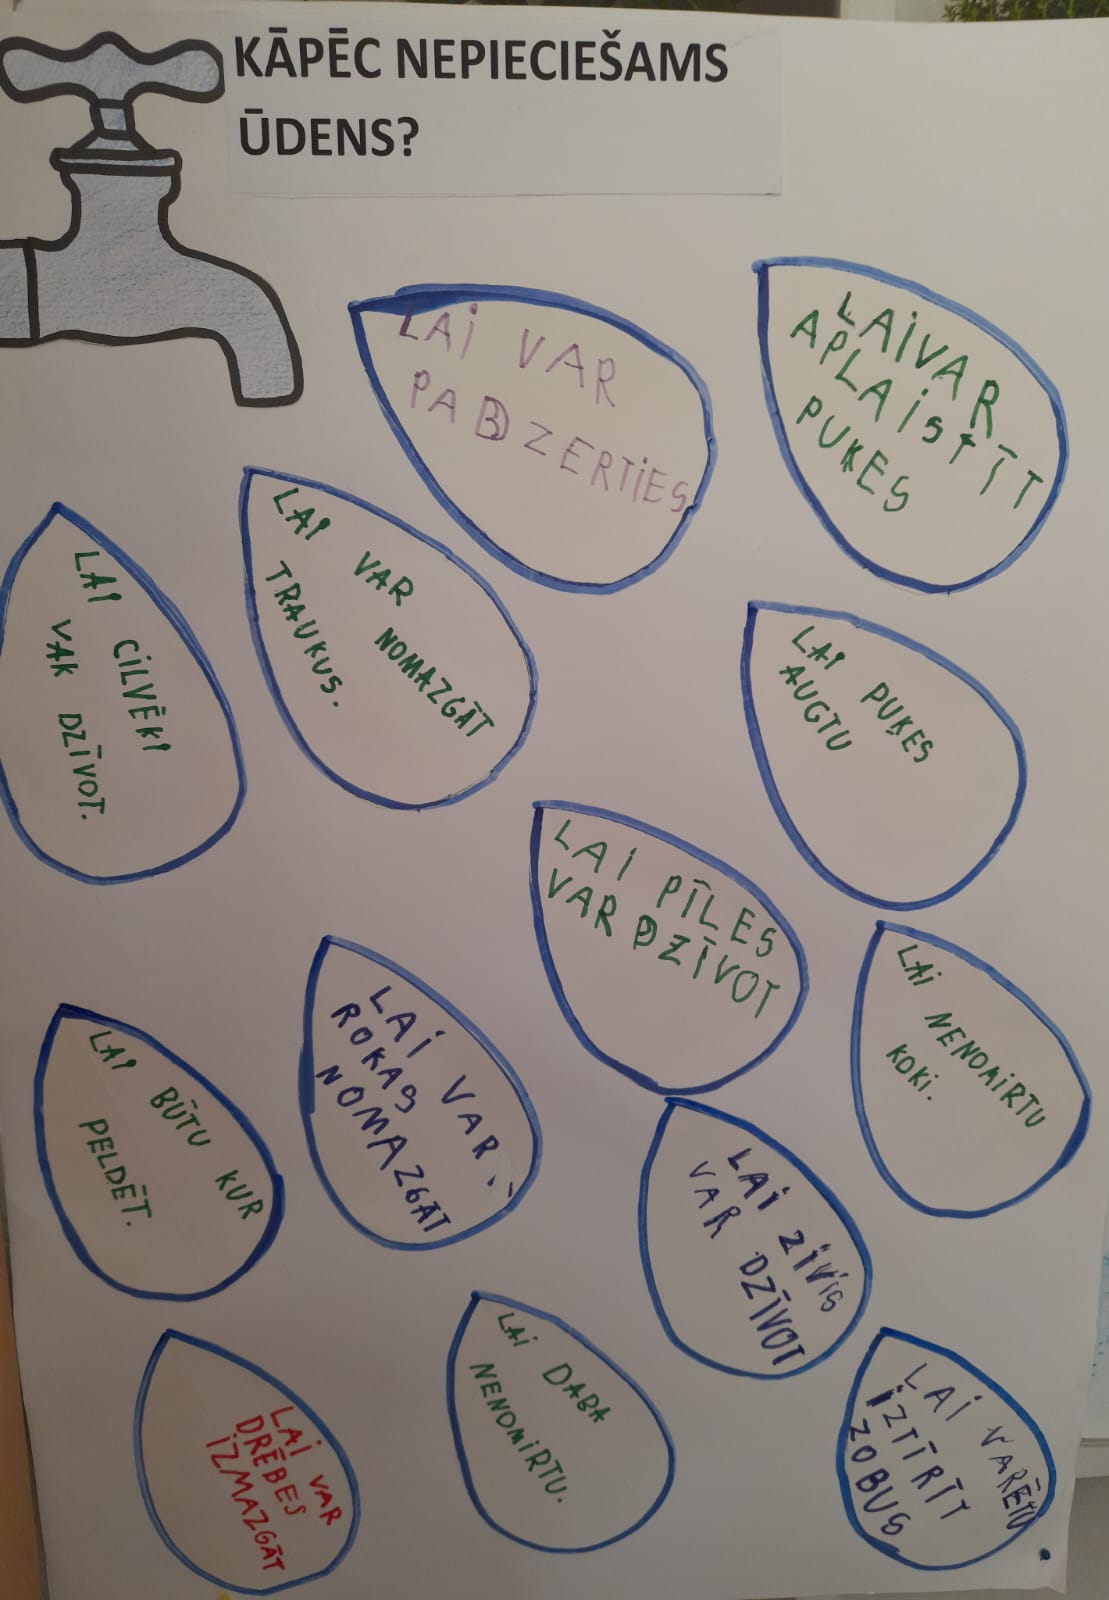 KĀPĒC NEPIECIEŠAMS
ŪDENS?
LAI VAR
PADZERTIES
LAIVAR
APLAISTĪT
PUĶES
LAI CILVĒKI
VAR DZĪVOT.
LAI VAR NOMAZGĀT
TRAUKUS.
LAI PUĶES
AUGTU
LAI PĪLES
VAR DZĪVOT
LAI NENOMIRTU
KOKI.
LAI BŪTU KUR
PELDĒT.
LAI VAR
ROKAS
NOMAZGĀT
LAI ZIVIS
VAR DZĪVOT
LAI VAR
DRĒBES
IZMAZGĀT
LAI DABA
NENOMIRTU.
LAI VARĒTU
IZTĪRĪT
ZOBUS